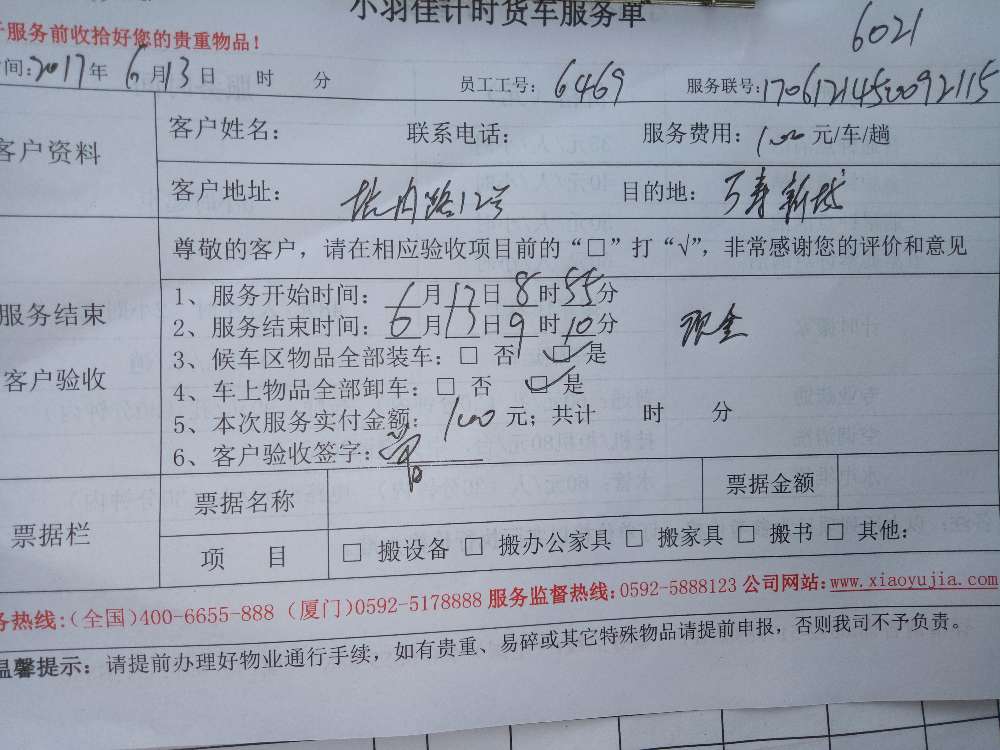 小羽佳计时货车服务单
服务前收拾好您的贵重物品！
6021
间：2017年 6月13日 时 分 员工工号：6469 服务联号：170612145009 2115
客户资料
客户姓名： 联系电话： 服务费用：100元/车/趟
客户地址： 路12号 目的地：万寿新村
尊敬的客户，请在相应验收项目前的“□”打“√”，非常感谢您的评价和意见
服务结束
客户验收
1、服务开始时间：6月13日8时55分
2、服务结束时间：6月13日9时10分 现金
3、候车区物品全部装车：□ 否 ☑ 是
4、车上物品全部卸车：□ 否 ☑ 是
5、本次服务实付金额：100元；共计 时 分
6、客户验收签字：
票据栏
票据名称 票据金额
项 目 □ 搬设备 □ 搬办公家具 □ 搬家具 □ 搬书 □ 其他：
务热线：（全国）400-6655-888（厦门）0592-5178888 服务监督热线：0592-5888123 公司网站：www.xiaoyujia.com
温馨提示：请提前办理好物业通行手续，如有贵重、易碎或其它特殊物品请提前申报，否则我司不予负责。